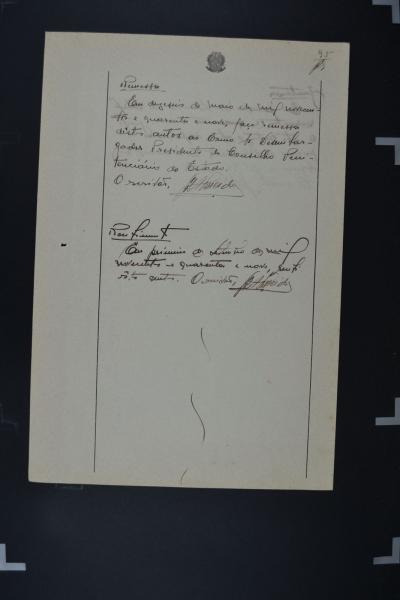 95
Remessa
Em dezeseis de maio de mil novecen-
tos e quarenta e nove, faço remessa
destes autos ao Exmo. Sr. Desembar-
gador Presidente do Conselho Peni-
tenciário do Estado.
O escrivão,
Recebimento
Em primeiro de de mil
novecentos e quarenta e nove,
autos. O escrivão,